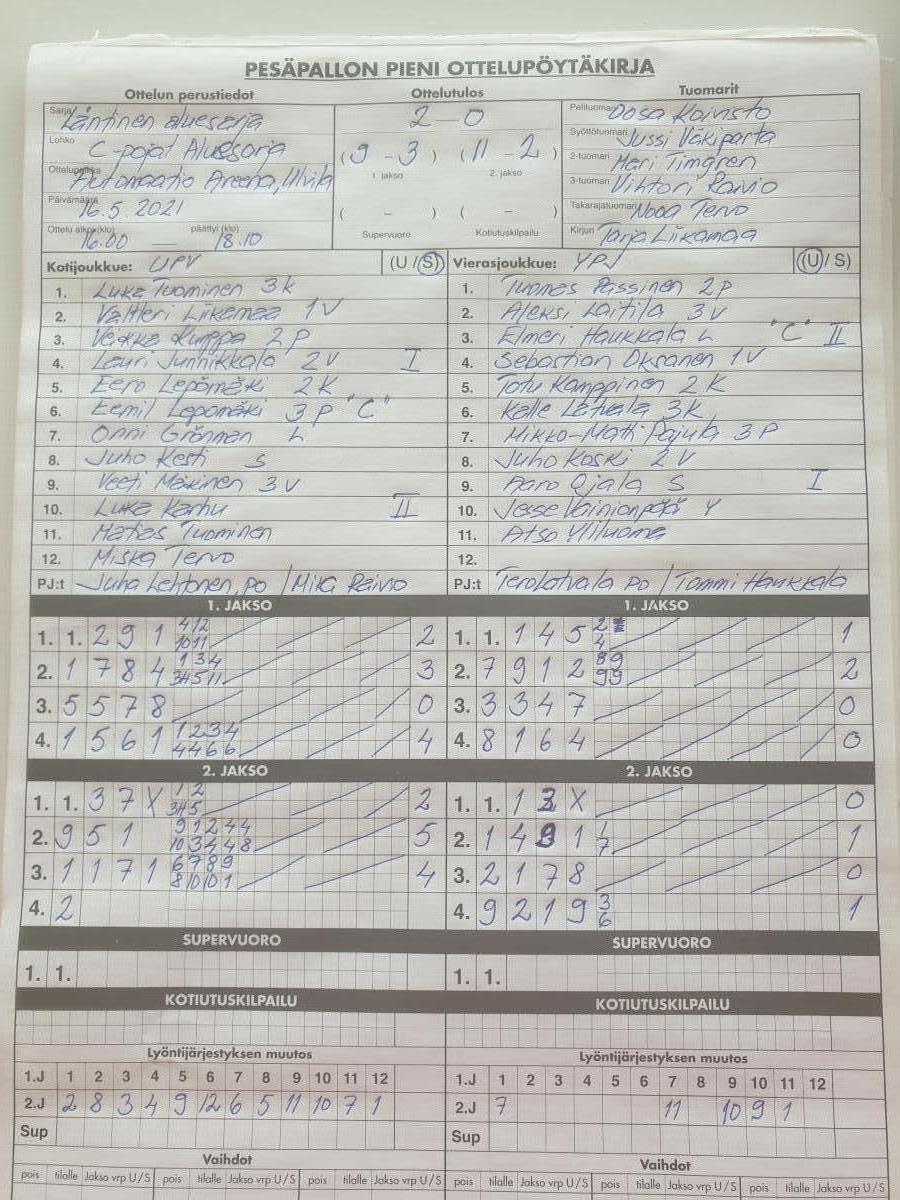 PESÄPALLON PIENI OTTELUPÖYTÄKIRJA
Ottelun perustiedot Ottelutulos Tuomarit
Sarja Läntinen aluesarja
Lohko C-pojat Aluesarja
Ottelupaikka Automaatio Areena, Ulvila
Päivämäärä 16.5.2021
Ottelu alkoi (klo) päättyi (klo)
16.00 — 18.10
2 – 0
(9 – 3) (11 – 2)
1. jakso 2. jakso
( – ) ( – )
Supervuoro Kotiutuskilpailu
Pelituomari Oosa Koivisto
Syöttötuomari Jussi Väkiparta
2-tuomari Mari Timgren
3-tuomari Vihtori Raivio
Takarajatuomari Nooa Tervo
Kirjuri Tarja Liikamaa
Kotijoukkue: UPV (U / S)
1. Luka Tuominen 3K
2. Valtteri Liikamaa 1V
3. Veikka Kumppa 2P
4. Lauri Junnikkala 2V I
5. Eero Lepomäki 2K
6. Eemil Lepomäki 3P "C"
7. Onni Grönman L
8. Juho Kesti S
9. Veeti Mäkinen 3V
10. Luka Karhu II
11. Matias Tuominen
12. Miska Tervo
PJ:t Juha Lehtonen, po / Mika Raivio
Vierasjoukkue: YPJ (U / S)
1. Tuomas Passinen 2P
2. Aleksi Laitila 3V
3. Elmeri Haukkala L "C" II
4. Sebastian Oksanen 1V
5. Totu Kamppinen 2K
6. Kalle Latvala 3K
7. Mikko-Matti Pajula 3P
8. Juho Koski 2V
9. Aaro Ojala S I
10. Jesse Vainionpää Y
11. Atso Yliluoma
12.
PJ:t Tero Latvala po / Tommi Haukkala
1. JAKSO
1. 1. 2 9 1 4 12 10 11 2
2. 1 7 8 4 1 3 4 3 4 5 11 3
3. 5 5 7 8 0
4. 1 5 6 1 1 2 3 4 4 4 6 6 4
1. JAKSO
1. 1. 1 4 5 2 4 1
2. 7 9 1 2 8 9 9 9 2
3. 3 3 4 7 0
4. 8 1 6 4 0
2. JAKSO
1. 1. 3 7 X 1 2 3 4 5 2
2. 9 5 1 9 1 2 4 4 10 3 4 4 8 5
3. 1 1 7 1 6 7 8 9 8 10 10 1 4
4. 2
2. JAKSO
1. 1. 1 3 X 0
2. 1 4 9 1 1 7 1
3. 2 1 7 8 0
4. 9 2 1 9 3 6 1
SUPERVUORO SUPERVUORO
1. 1. 1. 1.
KOTIUTUSKILPAILU KOTIUTUSKILPAILU
Lyöntijärjestyksen muutos
1.J 1 2 3 4 5 6 7 8 9 10 11 12
2.J 2 8 3 4 9 12 6 5 11 10 7 1
Sup
Lyöntijärjestyksen muutos
1.J 1 2 3 4 5 6 7 8 9 10 11 12
2.J 7 11 10 9 1
Sup
Vaihdot Vaihdot
pois tilalle Jakso vrp U / S pois tilalle Jakso vrp U / S pois tilalle Jakso vrp U / S
pois tilalle Jakso vrp U / S pois tilalle Jakso vrp U / S pois tilalle Jakso vrp U / S